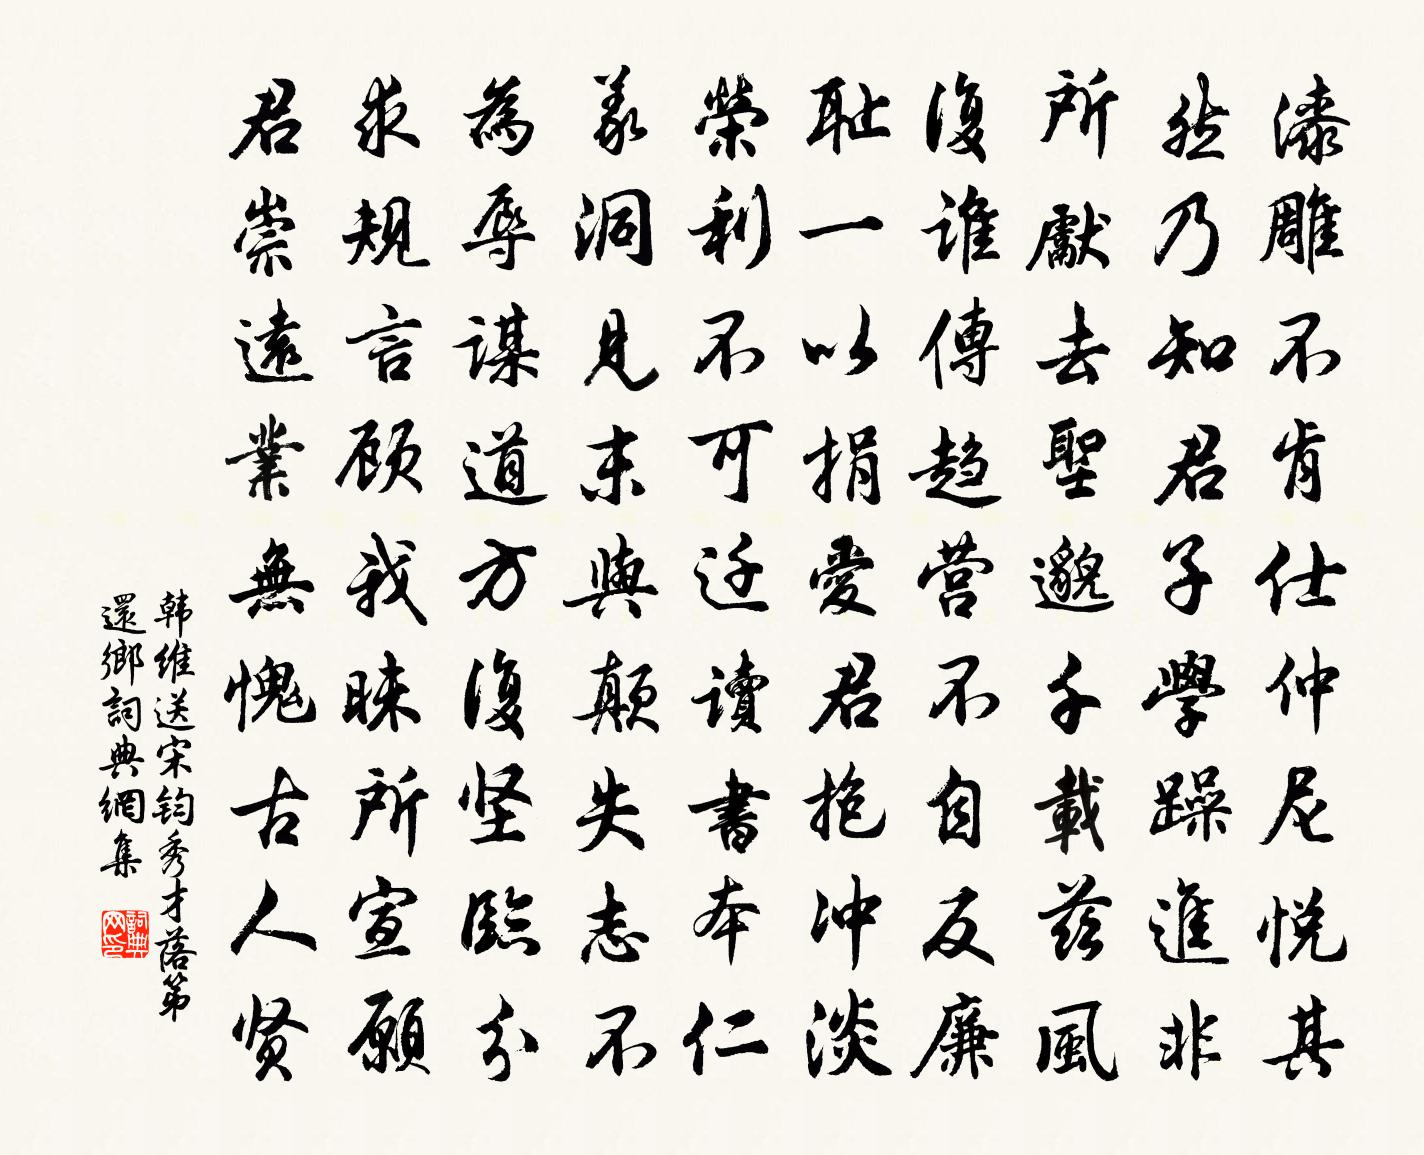 漆雕不肯仕仲尼悦其
然乃知君子學躁進非
所獻去聖邈千載兹風
復誰傳趋营不自反廉
耻一以捐愛君抱冲淡
榮利不可迁讀書本仁
義洞見末與颠失志不
為辱謀道方復坚臨分
求規言顾我昧所宣願
君崇遠業無愧古人贤
韩維送宋钧秀才落第
還鄉詞典網集
詞典网印